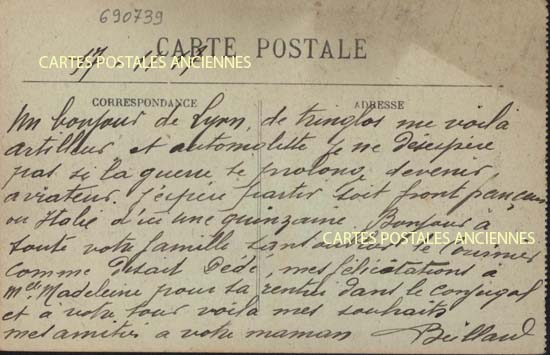 690739
CARTE POSTALE
CARTES POSTALES ANCIENNES
CORRESPONDANCE
ADRESSE
Un bonjour de Lyon, de tringlos me voilà
artilleur et automobiliste je ne désespère
pas si la guerre se prolonge devenir
aviateur. J'espère partir soit front français
ou Italie d'ici une quinzaine. Bonjour à
toute votre famille sans
CARTES POSTALES ANCIENNES
comme disait Dédé, mes félicitations à
Melle Madeleine pour sa rentrée dans le conjugal
et à votre tour voilà mes souhaits
mes amitiés a votre maman